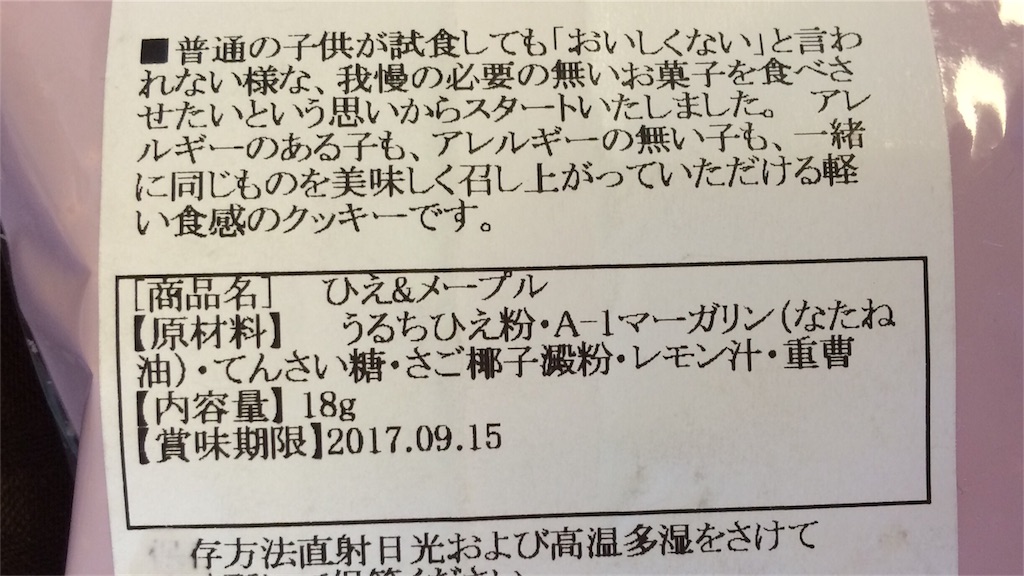 ■普通の子供が試食しても「おいしくない」と言わ
れない様な、我慢の必要の無いお菓子を食べさ
せたいという思いからスタートいたしました。 アレ
ルギーのある子も、アレルギーの無い子も、一緒
に同じものを美味しく召し上がっていただける軽
い食感のクッキーです。
[商品名] ひえ&メープル
【原材料】 うるちひえ粉・A-1マーガリン(なたね
油)・てんさい糖・さご椰子澱粉・レモン汁・重曹
【内容量】18g
【賞味期限】2017.09.15
存方法直射日光および高温多湿をさけて